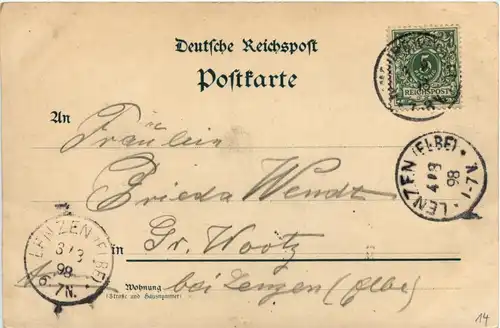 Deutsche Reichspost
Postkarte
5
REICHSPOST
An
Fräulein
Frieda Wendt
LENZEN (ELBE)
4/3
98
1-7V.
LENZEN (ELBE)
3/3
98
6-7N.
in
Gr. Wootz
Wohnung
(Straße und Hausnummer)
bei Lenzen (Elbe)
14